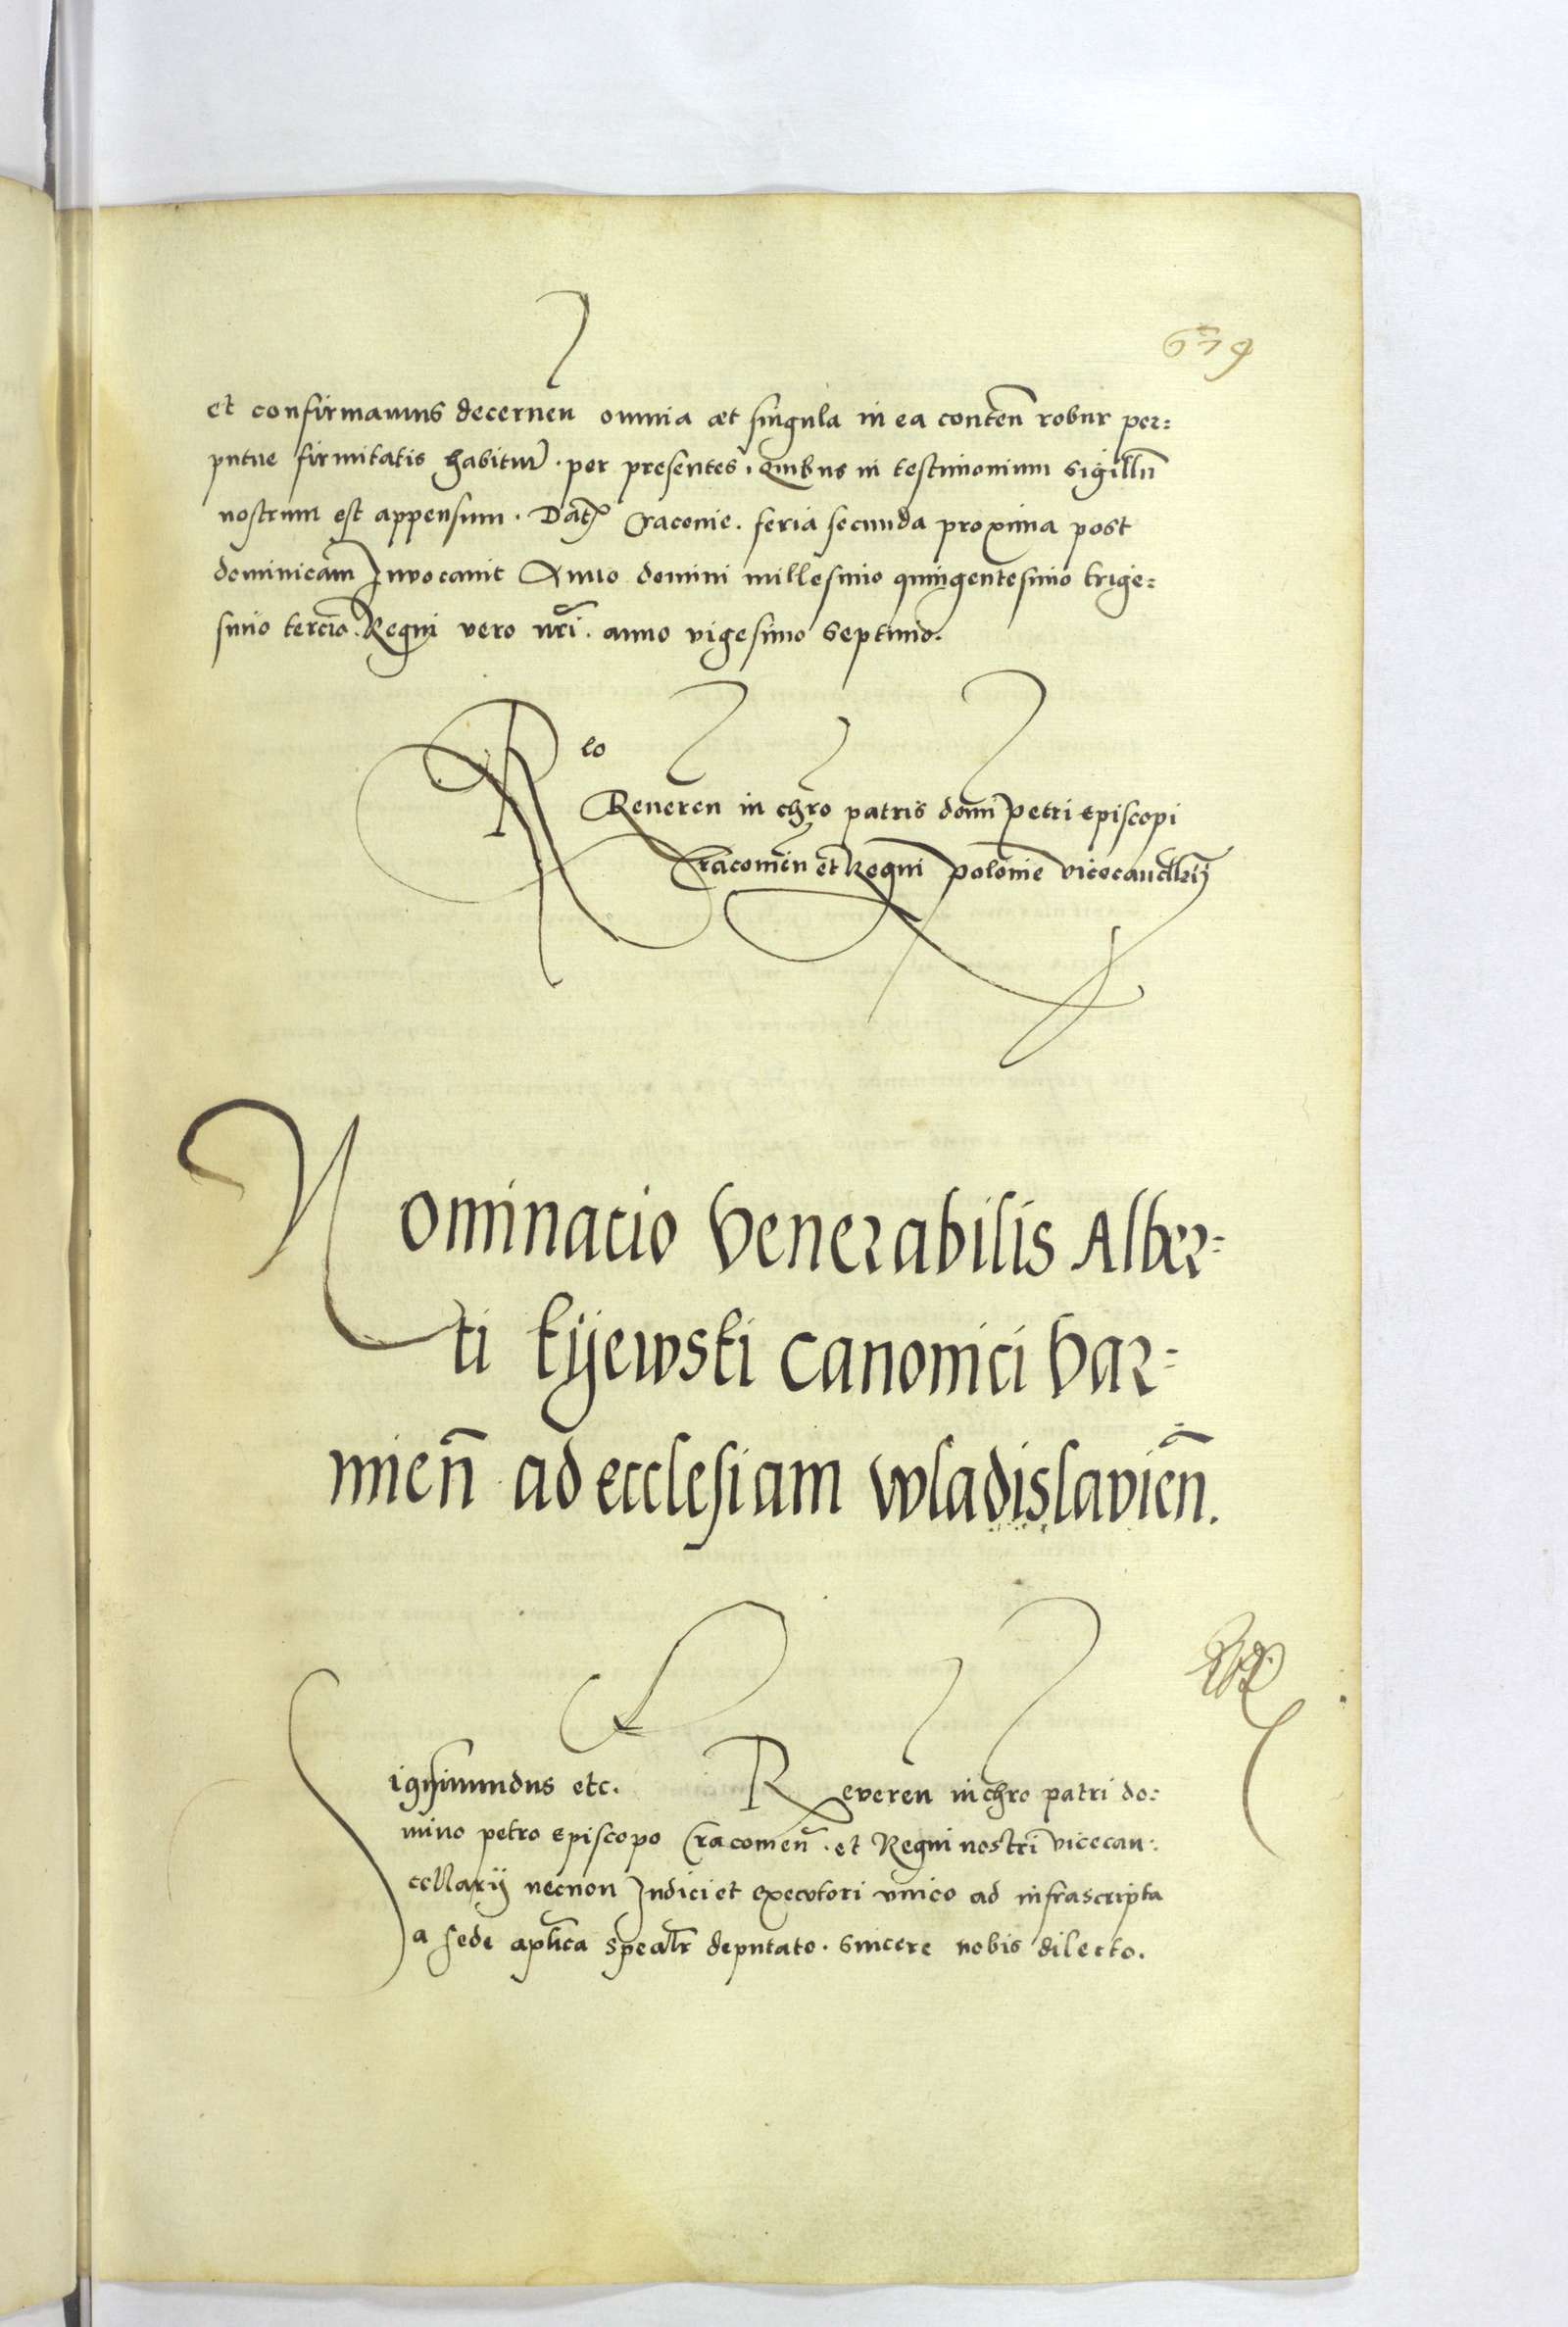 679
et confirmamus decernen omnia et singula in ea conteñ robur per=
petue firmitatis habitur̃ · per presentes · Quibus in testimonium sigillũ
nostrum est appensum · Dat̃ Cracouie · feria secunda proxima post
dominicam Inuocauit Anno domini millesimo quingentesimo trige=
simo tercio. Regni vero nr̃i · anno vigesimo septimo.
Rlo
Reueren in chro patris domi petri Episcopi
Cracouien et Regni polonie vicecancllrij
Nominacio Venerabilis Alber=
ti kijewski canonici Var=
mieñ ad ecclesiam wladislavieñ.
Sigismundus etc. Reveren in chro patri do=
mino petro Episcopo Cracouieñ · et Regni nostri vicecan=
cellarij necnon Judici et executori vnico ad infrascripta
a sede aplica spealr̃ deputato · sincere nobis dilecto.